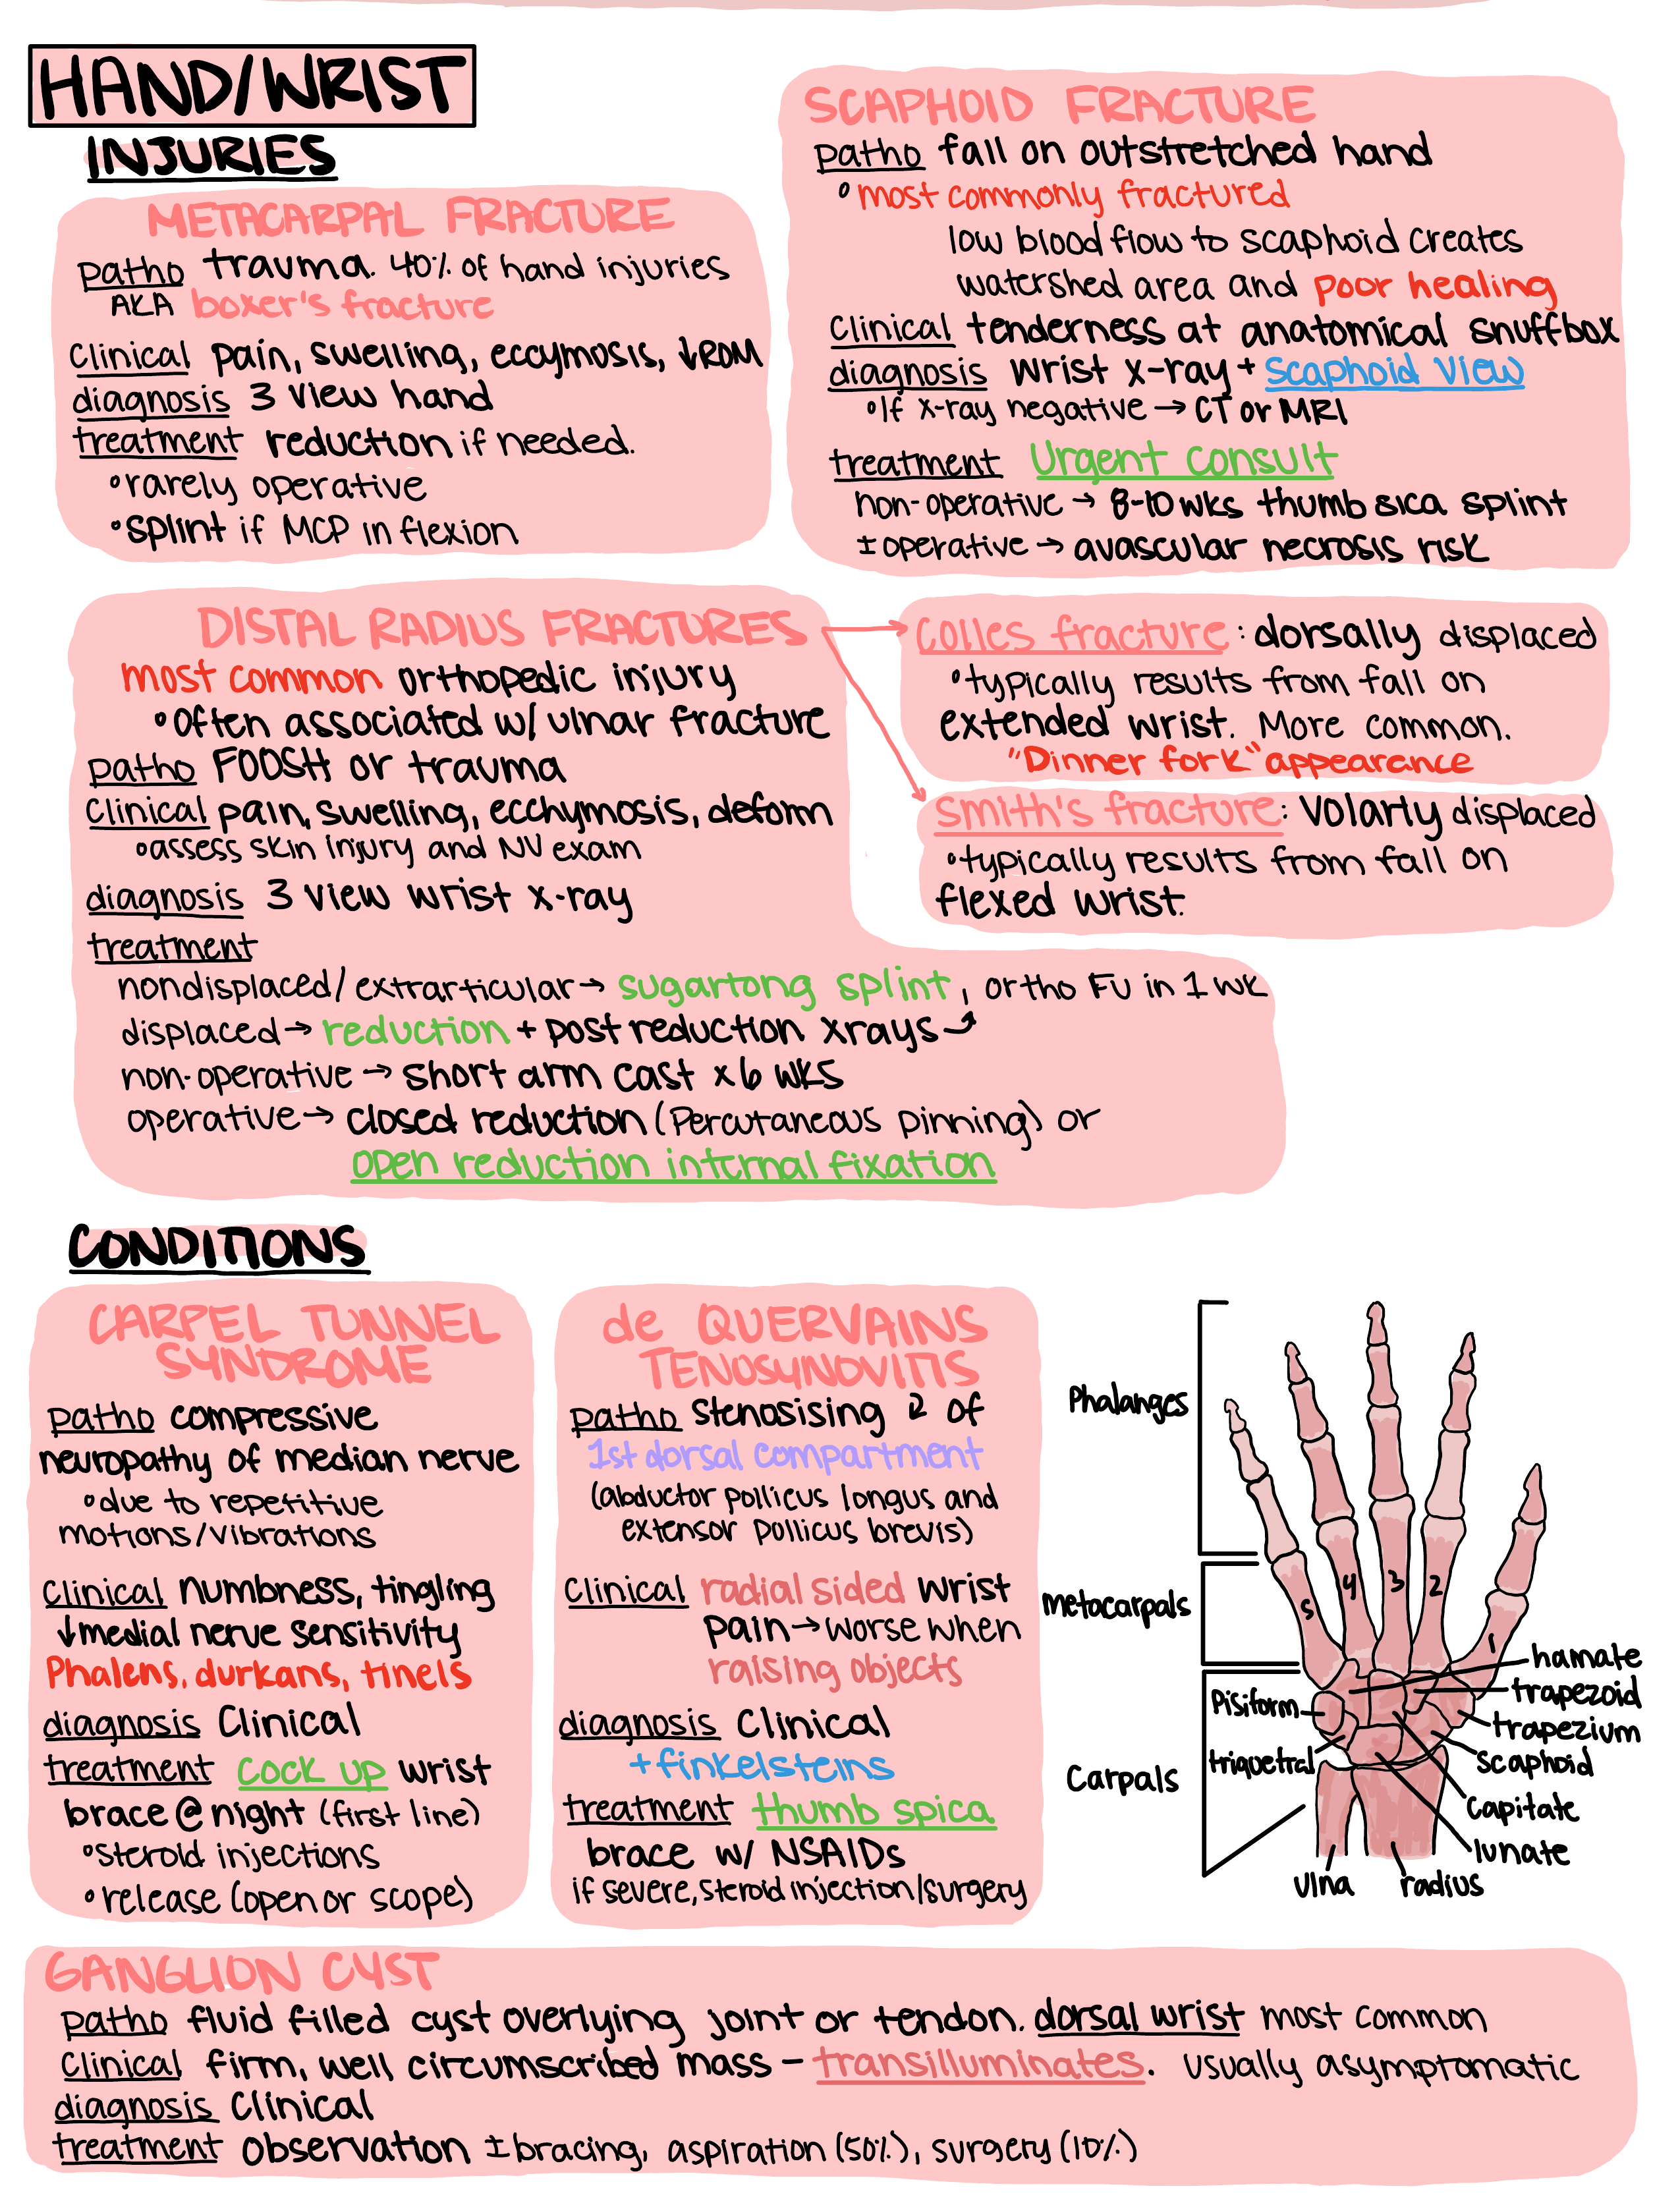 HAND/WRIST
INJURIES
METACARPAL FRACTURE
patho trauma. 40% of hand injuries
AKA boxer's fracture
Clinical pain, swelling, eccymosis, ↓ROM
diagnosis 3 view hand
treatment reduction if needed.
°rarely operative
°splint if MCP in flexion
SCAPHOID FRACTURE
patho fall on outstretched hand
° most commonly fractured
low blood flow to scaphoid creates
watershed area and poor healing
Clinical tenderness at anatomical snuffbox
diagnosis wrist x-ray + Scaphoid View
°If x-ray negative → CT or MRI
treatment Urgent consult
non-operative → 8-10 wks thumb sica splint
± operative → avascular necrosis risk
DISTAL RADIUS FRACTURES
most common orthopedic injury
°Often associated w/ ulnar fracture
patho FOOSH or trauma
Clinical pain, swelling, ecchymosis, deform
°assess skin injury and NV exam
diagnosis 3 view wrist x-ray
treatment
nondisplaced/extrarticular → sugartong splint, ortho FU in 1 wk
displaced → reduction + post reduction xrays
non-operative → short arm cast x 6 wks
operative → closed reduction (Percutaneous pinning) or
open reduction internal fixation
colles fracture: dorsally displaced
°typically results from fall on
extended wrist. More common.
"Dinner fork" appearance
smith's fracture: Volarly displaced
°typically results from fall on
flexed wrist.
CONDITIONS
CARPEL TUNNEL
SYNDROME
patho compressive
neuropathy of median nerve
°due to repetitive
motions/vibrations
Clinical numbness, tingling
↓medial nerve sensitivity
Phalens, durkans, tinels
diagnosis Clinical
treatment Cock up wrist
brace @ night (first line)
°steroid injections
°release (open or scope)
de QUERVAINS
TENOSYNOVITIS
patho stenosising 2 of
1st dorsal compartment
(abductor pollicus longus and
extensor pollicus brevis)
Clinical radial sided wrist
pain → worse when
raising objects
diagnosis Clinical
+ finkelsteins
treatment thumb spica
brace w/ NSAIDs
if severe, steroid injection/surgery
Phalanges
Metacarpals
Carpals
5
4
3
2
1
hamate
trapezoid
trapezium
scaphoid
capitate
lunate
Pisiform
triquetral
ulna
radius
GANGLION CYST
patho fluid filled cyst overlying joint or tendon. dorsal wrist most common
Clinical firm, well circumscribed mass - transilluminates. usually asymptomatic
diagnosis Clinical
treatment observation ± bracing, aspiration (50%), surgery (10%)